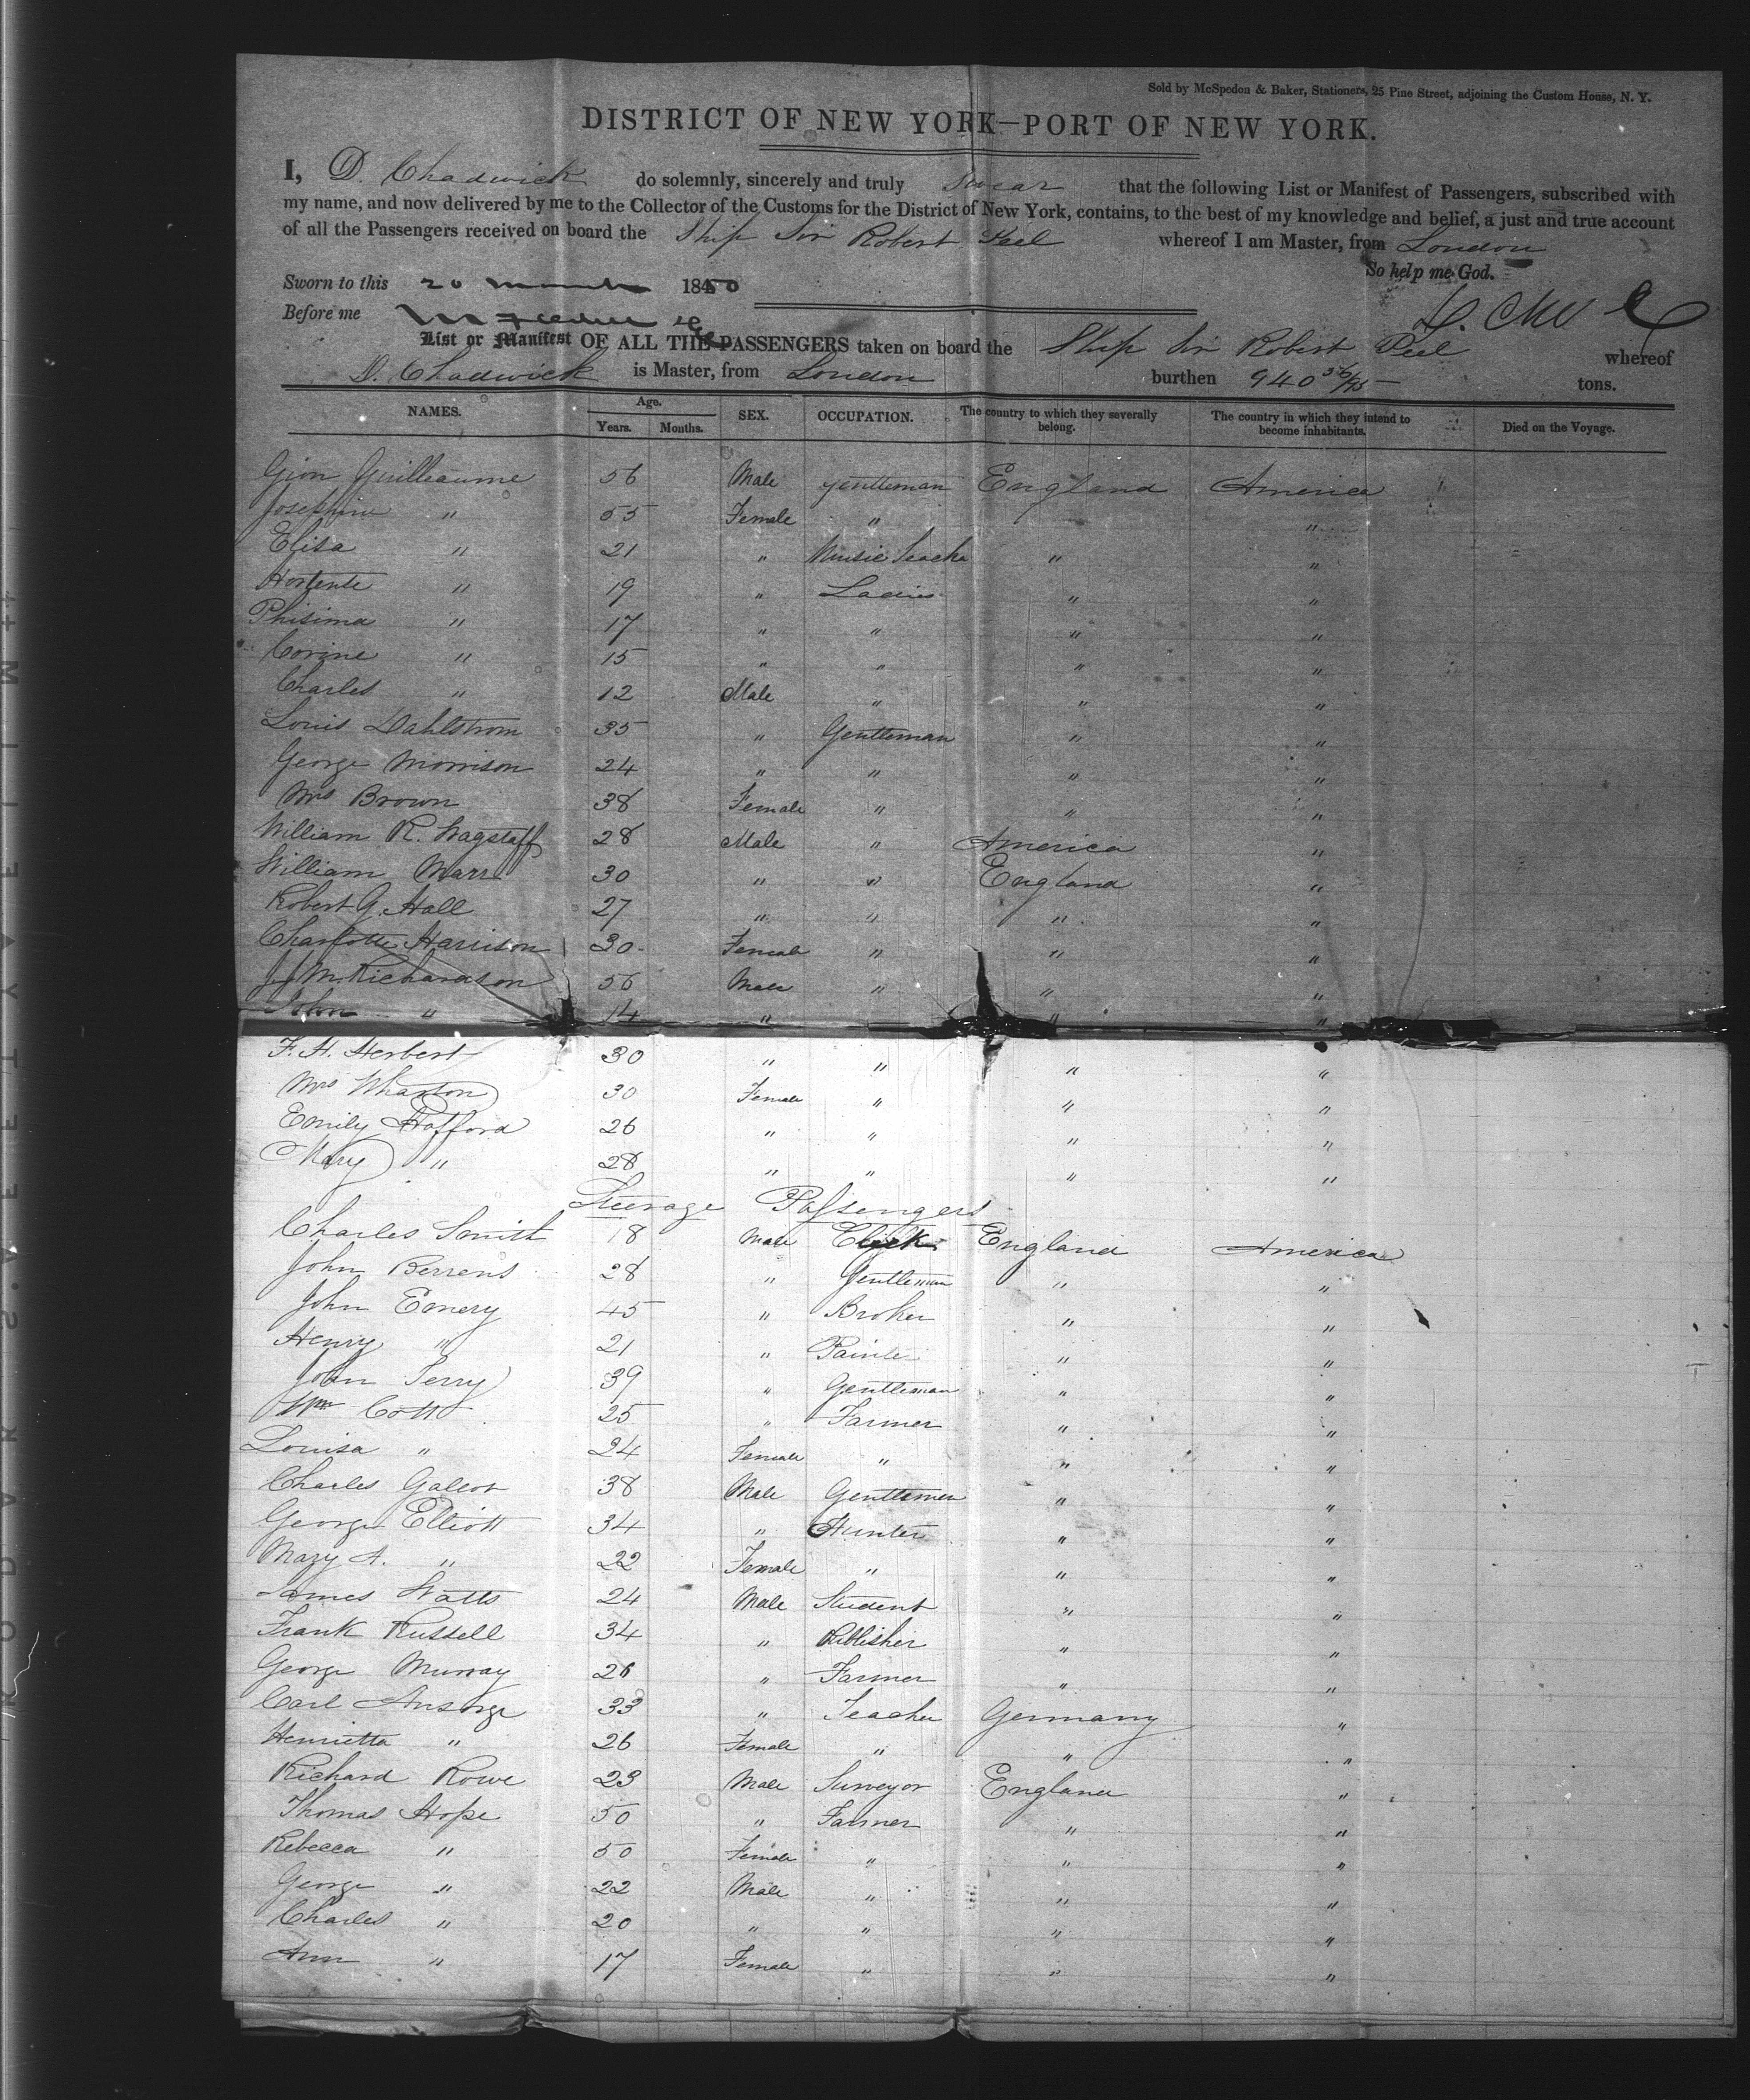 Sold by McSpedon & Baker, Stationers, 25 Pine Street, adjoining the Custom House, N. Y.
DISTRICT OF NEW YORK—PORT OF NEW YORK.
I, D. Chadwick do solemnly, sincerely and truly swear that the following List or Manifest of Passengers, subscribed with
my name, and now delivered by me to the Collector of the Customs for the District of New York, contains, to the best of my knowledge and belief, a just and true account
of all the Passengers received on board the Ship Sir Robert Peel whereof I am Master, from London
So help me God.
Sworn to this 20 March 1850
Before me
List or Manifest OF ALL THE PASSENGERS taken on board the Ship Sir Robert Peel whereof
D. Chadwick is Master, from London burthen 940 56/95 tons.
NAMES. Age. Years. Months. SEX. OCCUPATION. The country to which they severally belong. The country in which they intend to become inhabitants. Died on the Voyage.
Gion Guilleaume 56 Male gentleman England America
Josephine " 55 Female " "
Elisa " 21 " Music Teacher " "
Hortente " 19 " Ladies " "
Phisima " 17 " " " "
Corine " 15 " " " "
Charles " 12 Male " " "
Louis Dahlstrom 35 " Gentleman " "
George Morrison 24 " " " "
Mrs Brown 38 Female " " "
William R. Wagstaff 28 Male " America "
William Marr 30 " " England "
Robert G. Hall 27 " " " "
Charlotte Harrison 30 Female " " "
J. M. Richardson 56 Male " " "
John " 14 " " "
F. H. Herbert 30 " " " "
Mrs Wharton 30 Female " " "
Emily Hofford 26 " " " "
Mary " 28 " " " "
Steerage Passengers
Charles Smith 18 Male Clerk England America
John Berrens 28 " Gentleman " "
John Emery 45 " Broker " "
Henry " 21 " Painter " "
John Terry 39 " Gentleman " "
Wm Cott 25 " Farmer " "
Louisa " 24 Female " " "
Charles Galeot 38 Male Gentlemen " "
George Elliott 34 " Hunter " "
Mary A. " 22 Female " " "
James Watts 24 Male Student " "
Frank Russell 34 " Publisher " "
George Murray 26 " Farmer " "
Carl Ansorge 33 " Teacher Germany "
Henrietta " 26 Female " " "
Richard Rowe 23 Male Surveyor England "
Thomas Hope 50 " Farmer " "
Rebecca " 50 Female " " "
George " 22 Male " " "
Charles " 20 " " " "
Ann " 17 Female " " "